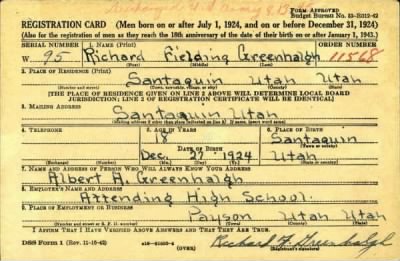 FORM APPROVED
Budget Bureau No. 33-R119-42
REGISTRATION CARD (Men born on or after July 1, 1924, and on or before December 31, 1924)
(Also for the registration of men as they reach the 18th anniversary of the date of their birth on or after January 1, 1943.)
SERIAL NUMBER 1. NAME (Print) ORDER NUMBER
W 95 Richard Fielding Greenhalgh 11568
(First) (Middle) (Last)
2. PLACE OF RESIDENCE (Print)
Santaquin Utah Utah
(Number and street) (Town, township, village, or city) (County) (State)
[THE PLACE OF RESIDENCE GIVEN ON LINE 2 ABOVE WILL DETERMINE LOCAL BOARD
JURISDICTION; LINE 2 OF REGISTRATION CERTIFICATE WILL BE IDENTICAL]
3. MAILING ADDRESS
Santaquin Utah
[Mailing address if other than place indicated on line 2. If same, insert word same]
4. TELEPHONE 5. AGE IN YEARS 6. PLACE OF BIRTH
18 Santaquin
DATE OF BIRTH (Town or county)
Dec. 27 1924 Utah
(Exchange) (Number) (Mo.) (Day) (Yr.) (State or country)
7. NAME AND ADDRESS OF PERSON WHO WILL ALWAYS KNOW YOUR ADDRESS
Albert A. Greenhalgh
8. EMPLOYER'S NAME AND ADDRESS
Attending High School.
9. PLACE OF EMPLOYMENT OR BUSINESS
Payson Utah Utah
(Number and street or R. F. D. number) (Town) (County) (State)
I AFFIRM THAT I HAVE VERIFIED ABOVE ANSWERS AND THAT THEY ARE TRUE.
DSS Form 1 (Rev. 11-16-42) (OVER) Richard F. Greenhalgh